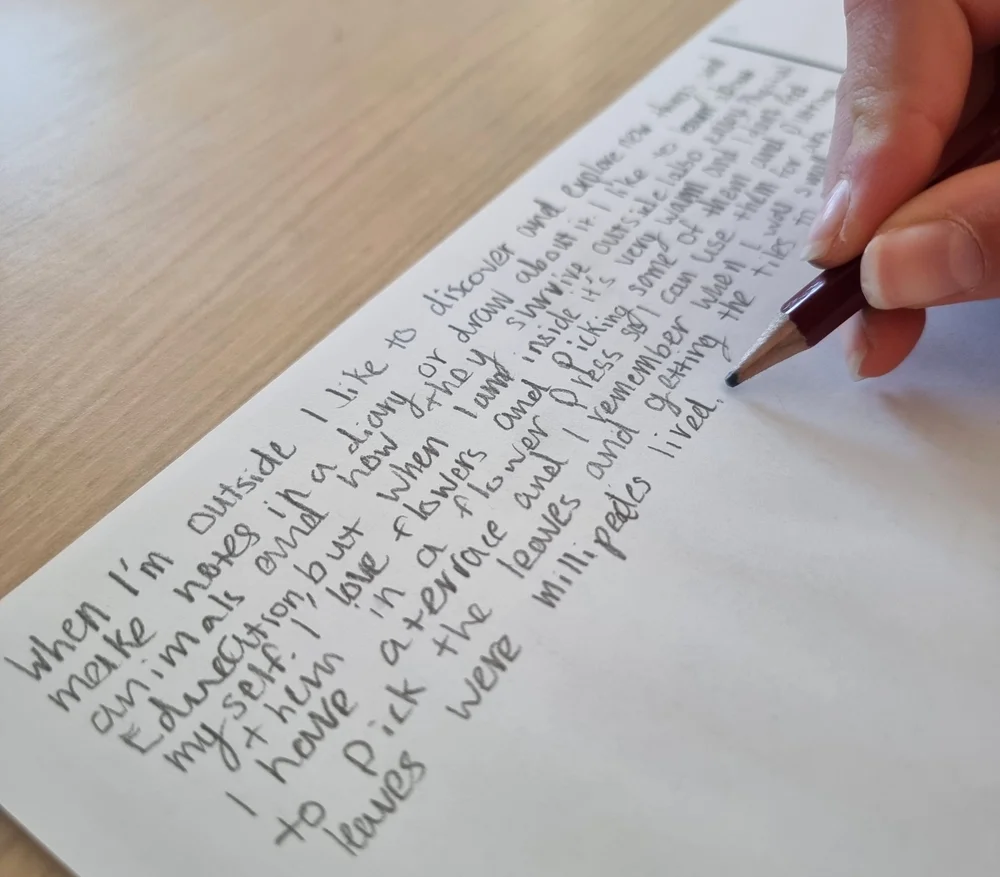 When I'm outside I like to discover and explore new things and
make notes in a diary or draw about it. I like to
animals and how they survive outside. I also enjoy Physical
Education, but when I am inside it's very warm and I
my self. I love flowers and picking some of them and
them in a flower press so I can use them for
I have a terrace and I remember when I was
to pick the leaves and getting the tiles in
leaves were millipedes lived.